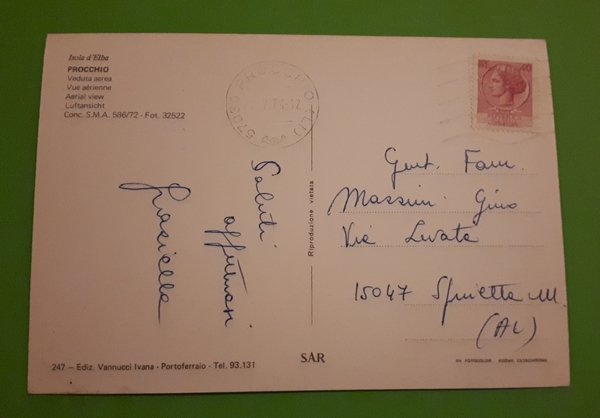 Isola d'Elba
PROCCHIO
Veduta aerea
Vue aérienne
Aerial view
Luftansicht
Conc. S.M.A. 586/72 - Fot. 32522
Saluti
affettuosi
Graziella
Riproduzione vietata
Gent. Fam.
Massimi Gino
Via
15047 Spinetta M.
(AL)
247 - Ediz. Vannucci Ivana - Portoferraio - Tel. 93.131
SAR